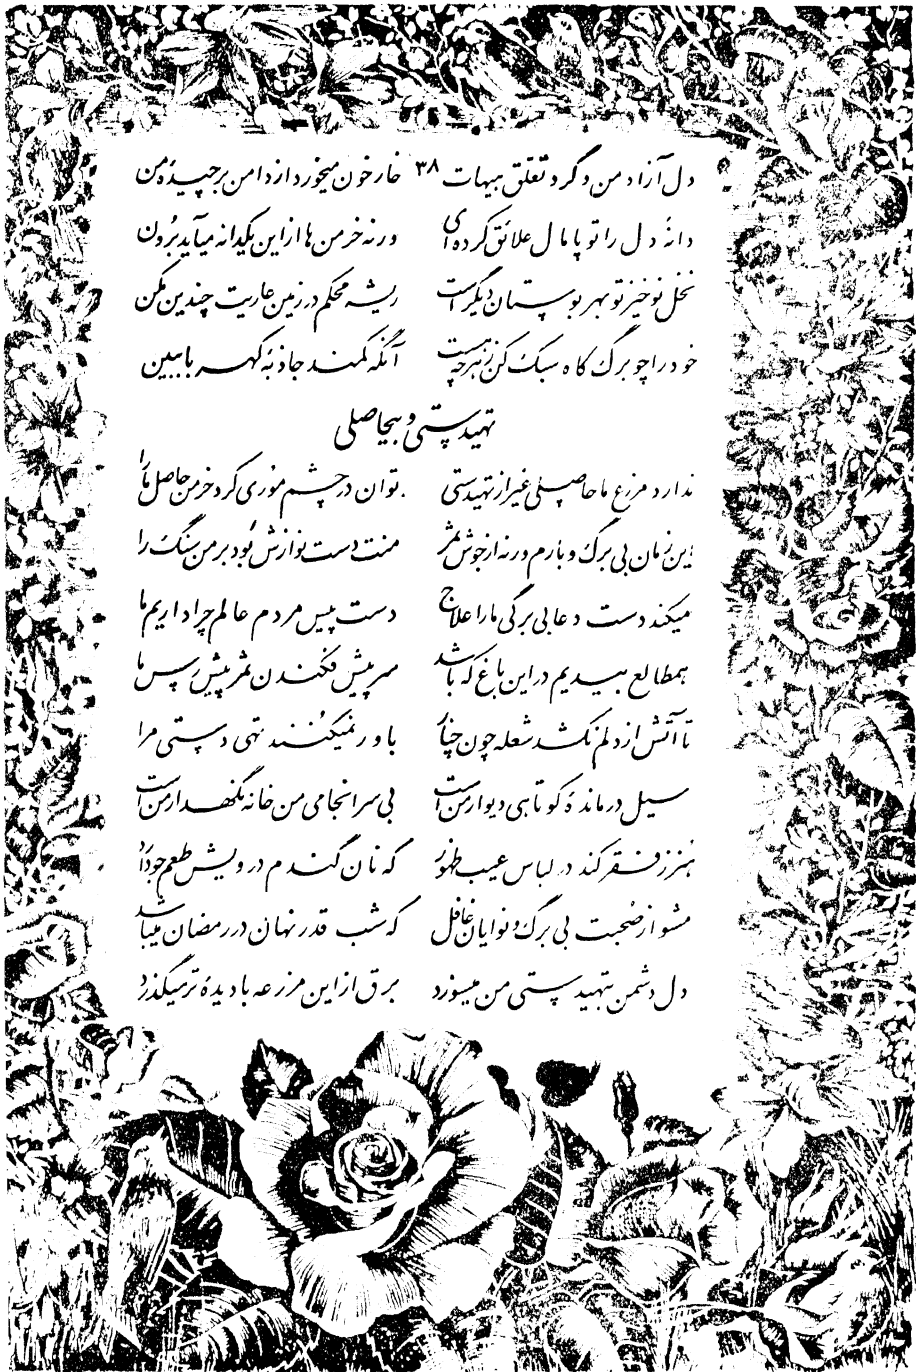 دل آزاد من و گرد تعلق هیهات ۳۸ خار خون میخورد از دامن برچیدهٔ من
دانهٔ دل را تو پامال علائق کرده‌ای ورنه خرمن‌ها از این یکدانه میآید برون
نخل نوخیز تو بهر بوستان دیگر است ریشه محکم در زمین عاریت چندین مکن
خود را چو برگ کاه سبک کن ز هرچه هست آنگه کمند جاذبهٔ کهربا ببین
تهیدستی و بیحاصلی
ندارد مزرع ما حاصلی غیر از تهیدستی توان در چشم موری کرد خرمن حاصل ما را
این زمان بی برگ و بارم ورنه از جوش ثمر منت دست نوازش بود بر من سنگ را
میکند دست دعا بی برگی ما را علاج دست پیش مردم عالم چرا داریم ما
طالع بیدیم در این باغ که باشد سر پیش فکندن ثمر پیش رس ما
تا آتش از دلم نکشد شعله چون چنار باور نمیکنند تهی دستی مرا
سیل درماندهٔ کوتاهی دیوار من است بی سرانجامی من خانه نگهدار من است
هنر ز فقر کند در لباس عیب ظهور که نان گندم درویش طعم جو دارد
مشو از صحبت بی برگ و نوایان غافل که شب قدر نهان در رمضان میباشد
دل دشمن بتهیدستی من میسوزد برق از این مزرعه با دیدهٔ تر میگذرد